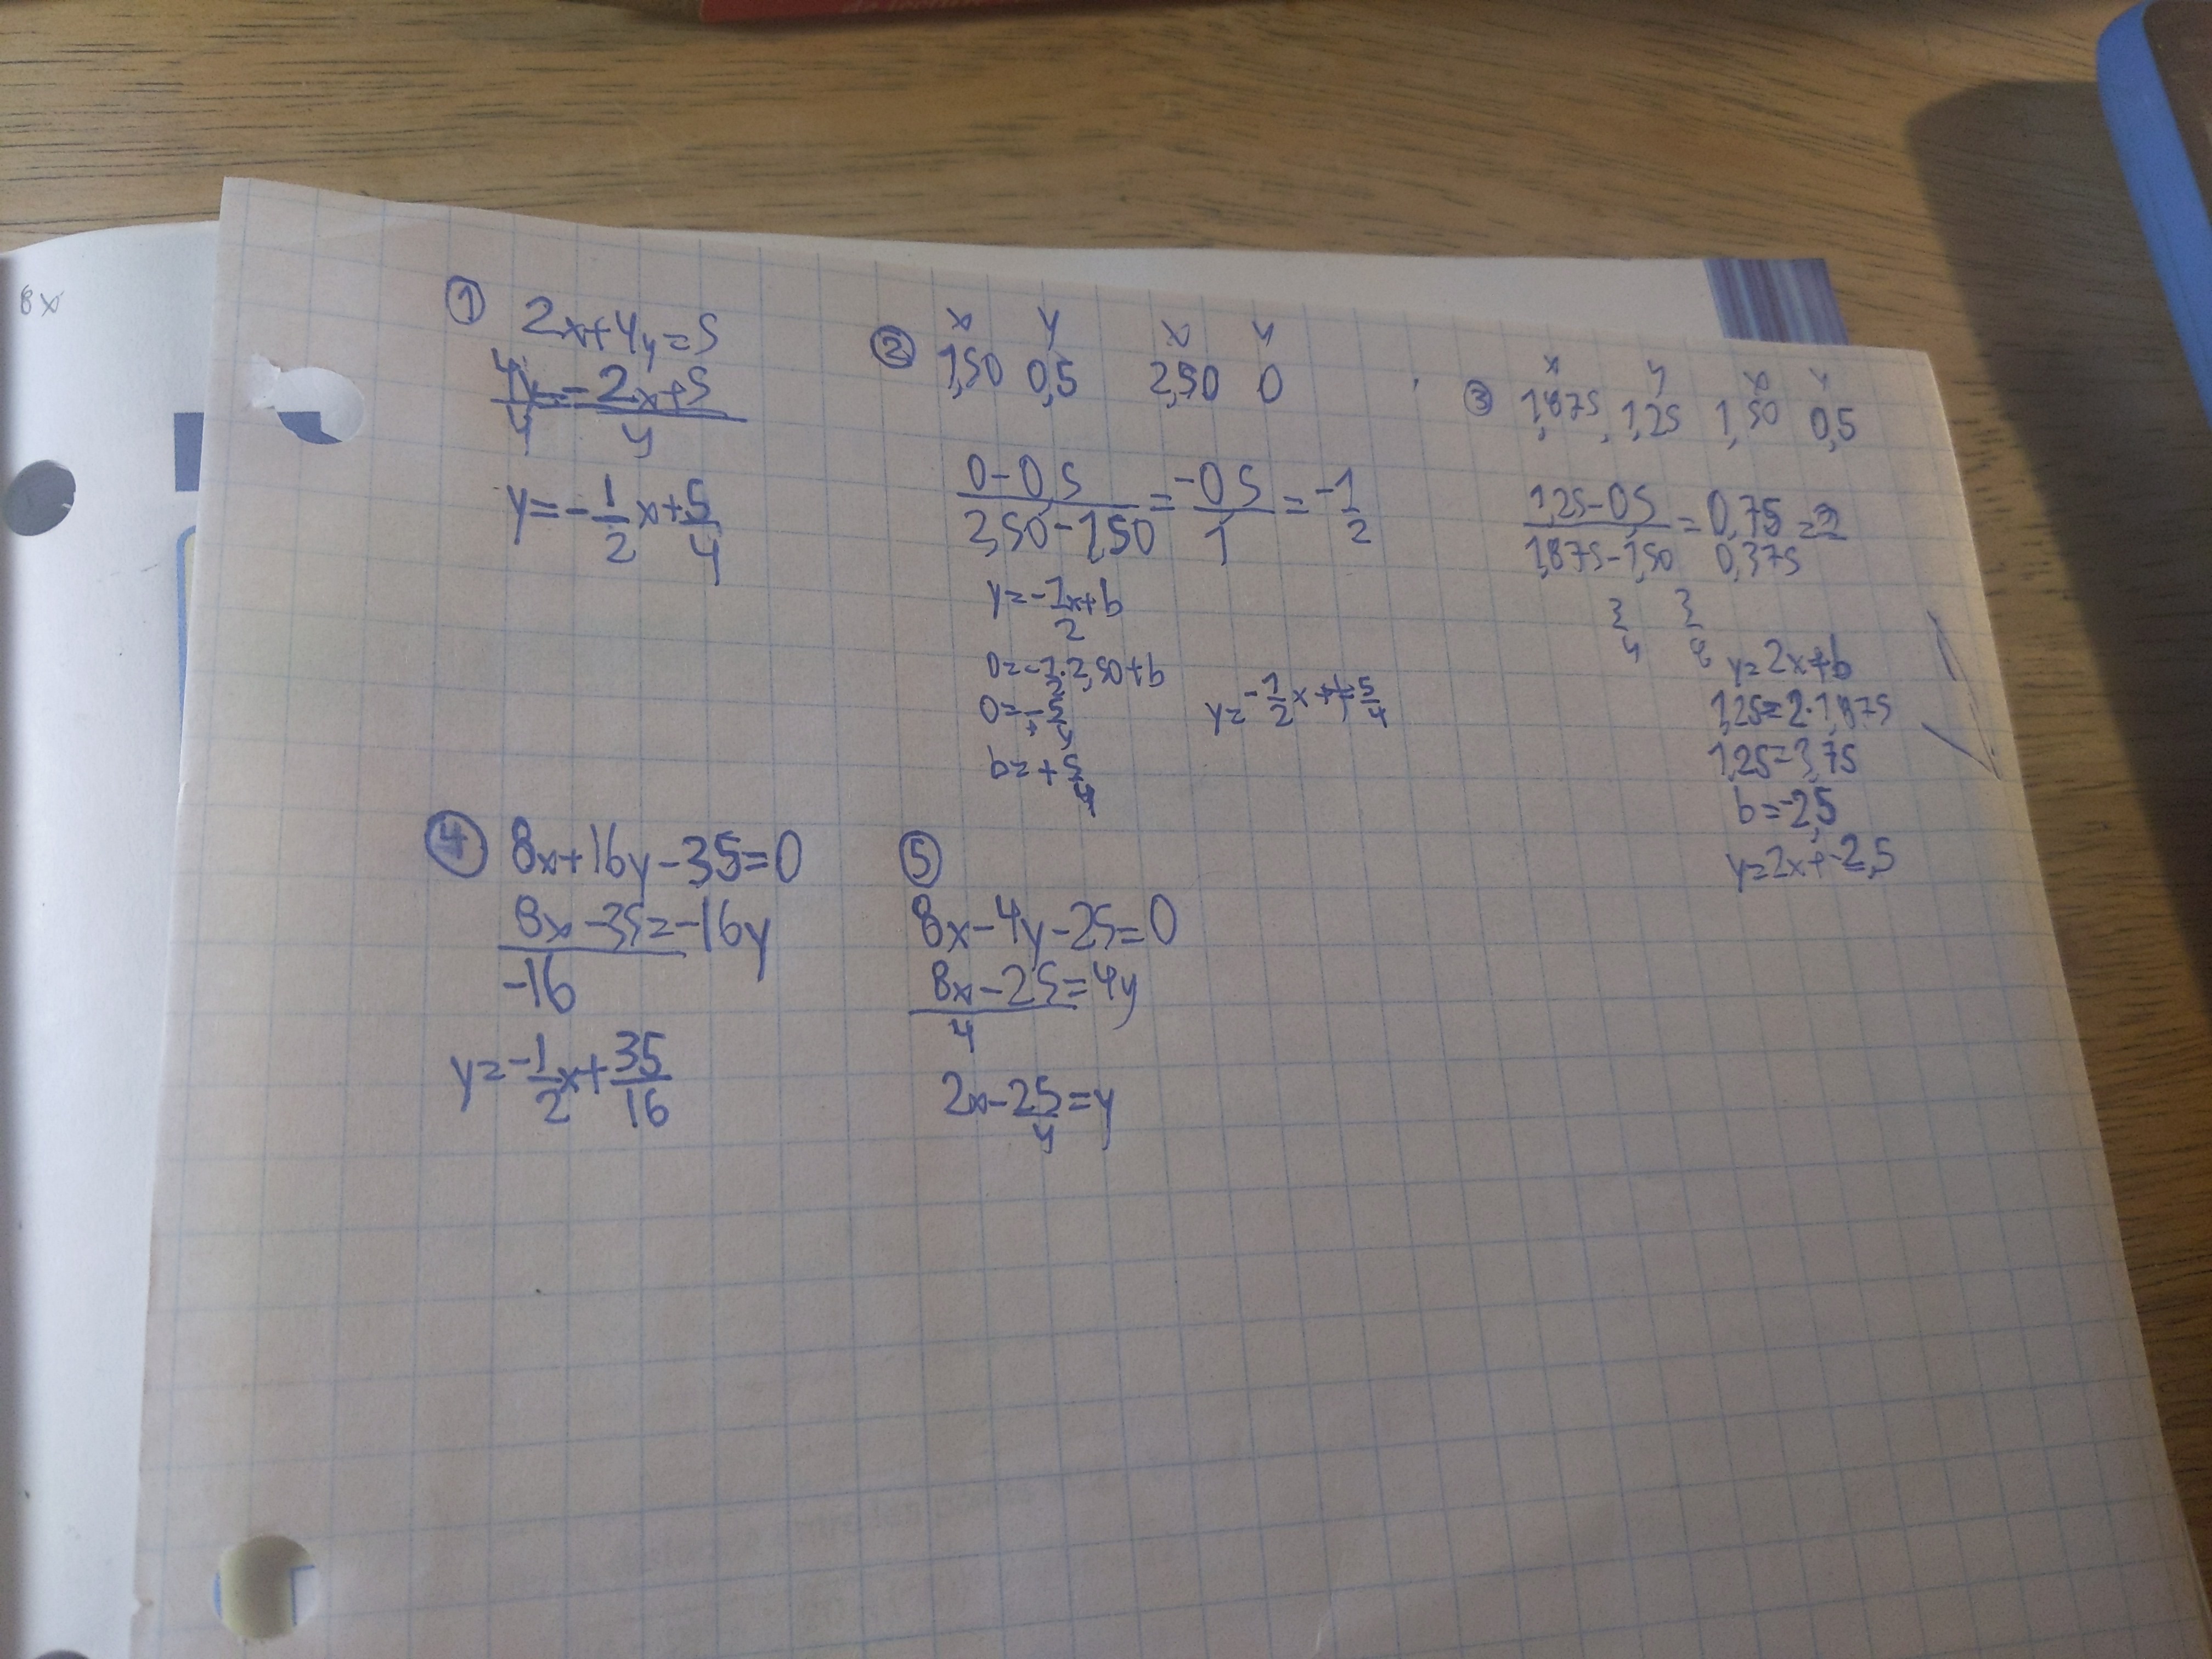 de lecture
8x
① 2x+4y=5
4y=-2x+5
4 4
y=-1/2x+5/4
② x y x y
1,50 0,5 2,50 0
0-0,5/2,50-1,50=-0,5/1=-1/2
y=-1/2x+b
0=-1/2·2,50+b
0=-5/4
b=+5/4
y=-1/2x+5/4
③ x y x y
1,875, 1,25 1,50 0,5
1,25-0,5/1,875-1,50=0,75/0,375=2
3/4 3/8
y=2x+b
1,25=2·1,875
1,25=3,75
b=-2,5
y=2x+-2,5
④ 8x+16y-35=0
8x-35=-16y
-16
y=-1/2x+35/16
⑤
8x-4y-25=0
8x-25=4y
4
2x-25/4=y